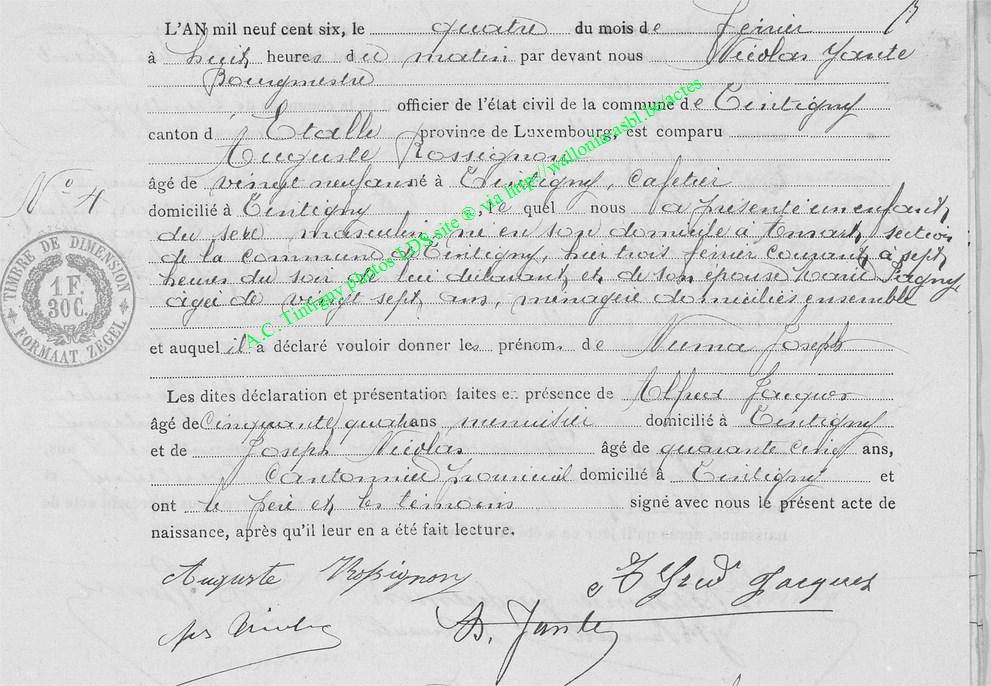 L'AN mil neuf cent six, le quatre du mois de février
à huit heures du matin par devant nous Nicolas Jante
Bourgmestre
officier de l'état civil de la commune de Tintigny
canton d'Etalle province de Luxembourg, est comparu
Auguste Rossignon
âgé de vingt neuf ans né à Tintigny, cafetier
domicilié à Tintigny, le quel nous a présenté un enfant
du sexe masculin, né en son domicile à Ansart, section
de la commune de Tintigny, hier trois février courant, à sept
heures du soir de lui déclarant et de son épouse Marie
agée de vingt sept ans, ménagère domiciliés ensemble
et auquel il a déclaré vouloir donner les prénoms de Numa Joseph
Les dites déclaration et présentation faites en présence de Alfred Jacques
âgé de cinquante quatre ans menuisier domicilié à Tintigny
et de Joseph Nicolas âgé de quarante cinq ans,
cantonnier provincial domicilié à Tintigny et
ont le père et les témoins signé avec nous le présent acte de
naissance, après qu'il leur en a été fait lecture.
No 4
TIMBRE DE DIMENSION
1 F.
30 C.
FORMAAT ZEGEL
A.C. Tintigny photos LDS site ® via http://wallonia.asbl.be/actes
Auguste Rossignon
Alfred Jacques
Jos Nicolas
N. Jante